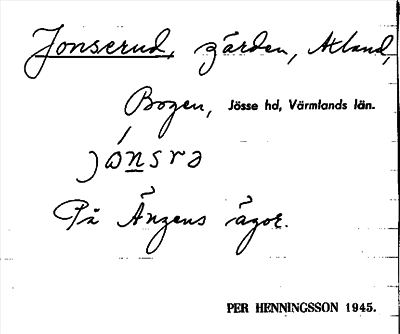 Jonserud, gården, Utland,
Bogen, Jösse hd, Värmlands län.
jònsrə
På Ängens ägor.
PER HENNINGSSON 1945.